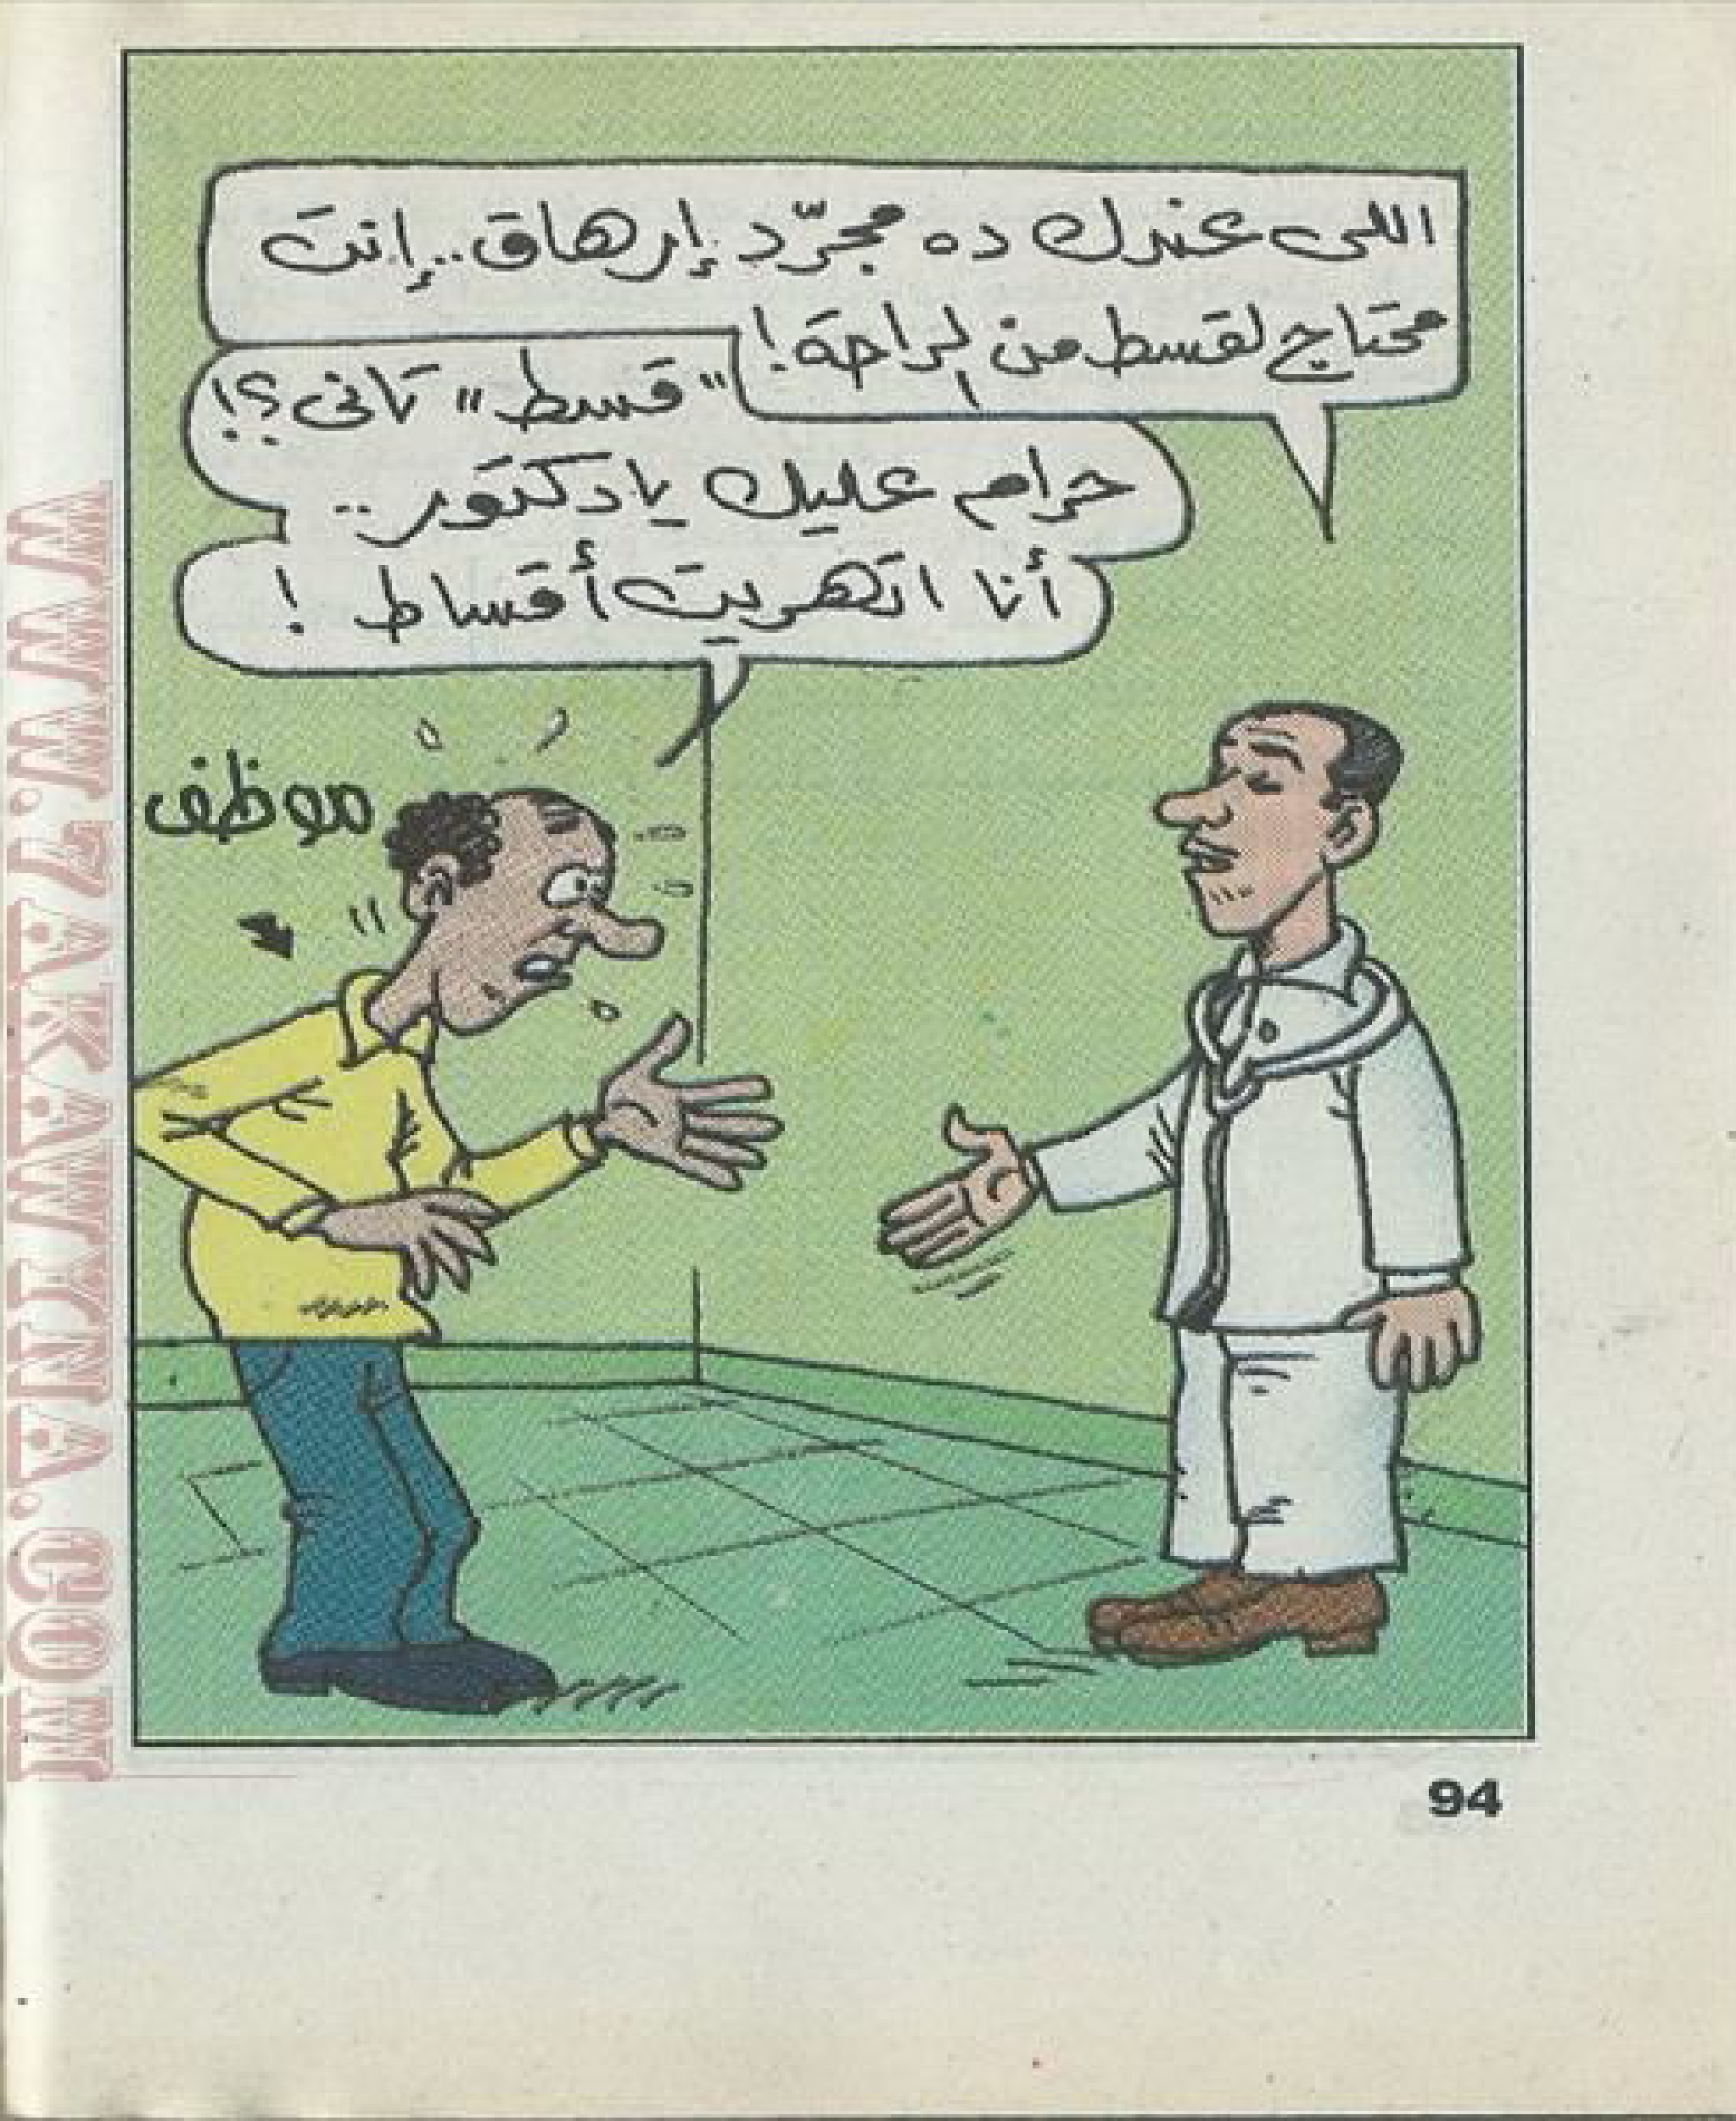 اللى عندك ده مجرّد إرهاق.. إنت
محتاج لقسط من الراحة!
"قسط" تانى؟!
حرام عليك يا دكتور..
أنا اتهريت أقساط !
موظف
WWW.ZAKAWINNA.COM
94